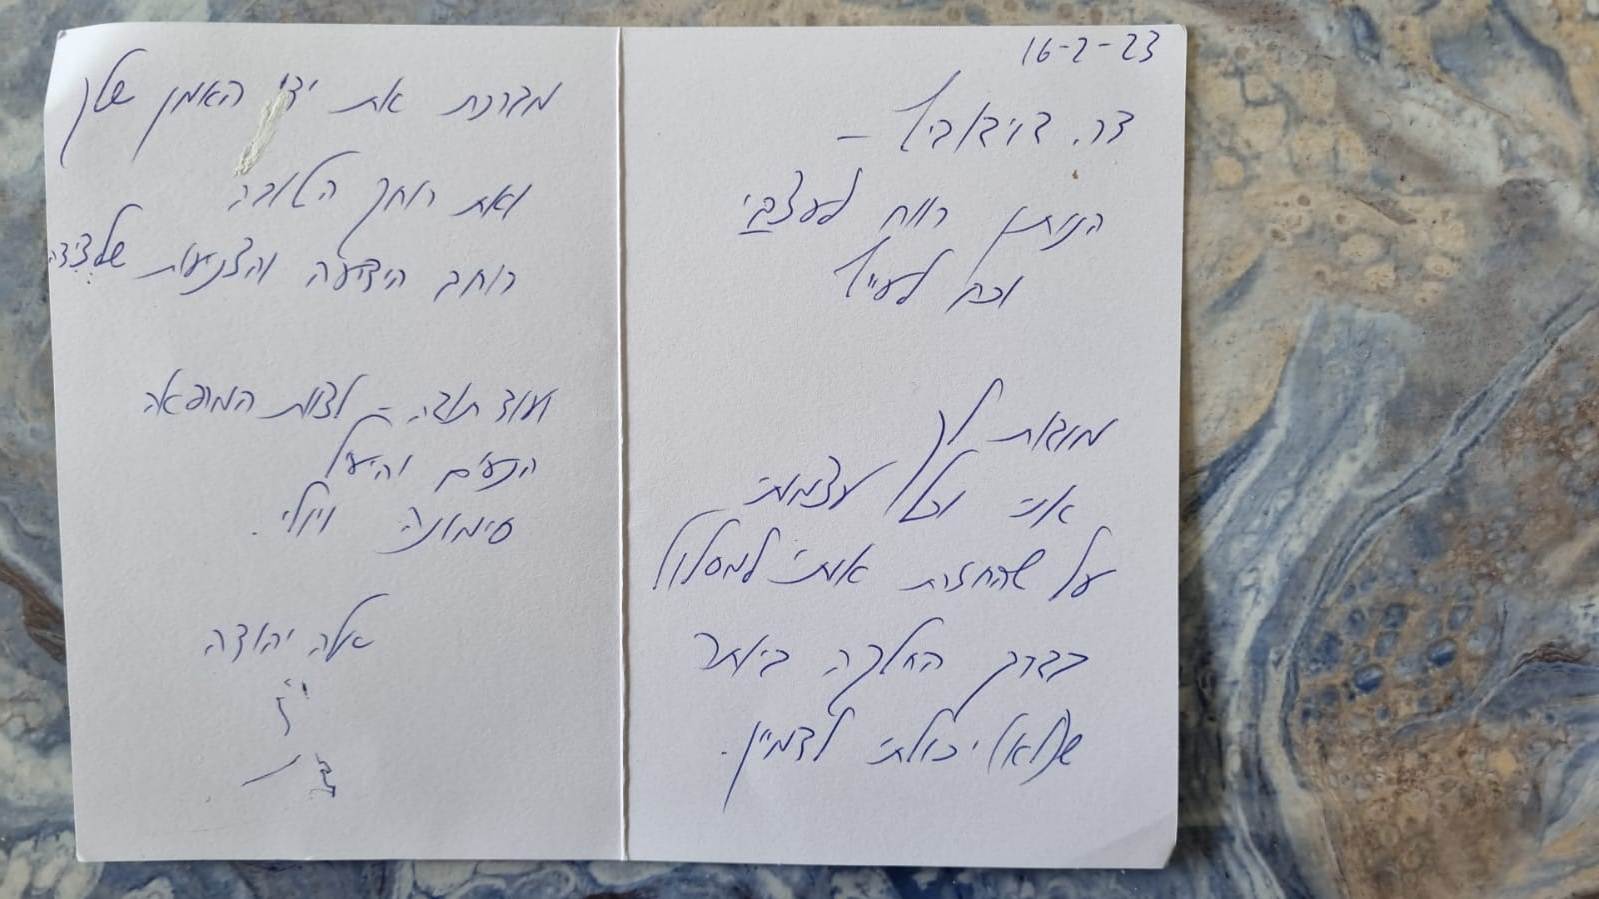 16-2-23
דר. דוידוביץ' –
הנותן רווח לעצבי
וכח לעי"ן
מודה לך
אני וכל עצמותי
על שהחזרת אותי למסלול
בדרך החלקה ביותר
ש(לא) יכולתי לדמיין.
מברכת את ידי האמן שלך
ואת רוחך הטובה
רוחב הידיעה והצניעות שלצידה
ועוד תודה – לצוות המרפאה
הנעים והיעיל
סימונה ויולי.
אלה יהודה